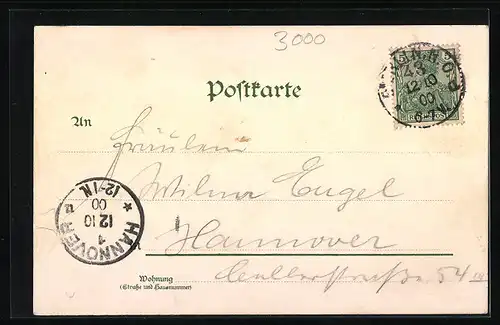 3000
Postkarte
An
Fräulein
Wilma Engel
Hannover
Cellerstraße 54 III
Wohnung
(Straße und Hausnummer)
HANNOVER
1
12 10
00
12-1N.
12 10
00